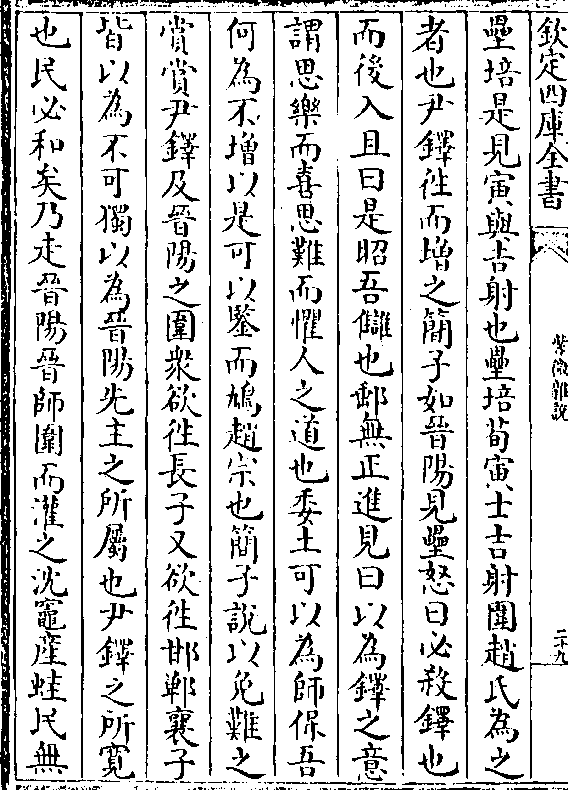 欽定四庫全書
紫微雜說
二十九
壘培是見寅與吉射也壘培荀寅士吉射圍趙氏為之
者也尹鐸徃而增之簡子如晉陽見壘怒曰必殺鐸也
而後入且曰是昭吾讎也郵無正進見曰以為鐸之意
謂思樂而喜思難而懼人之道也委土可以為師保吾
何為不增以是可以鑒而鳩趙宗也簡子說以免難之
賞賞尹鐸及晉陽之圍衆欲徃長子又欲徃邯鄲襄子
皆以為不可獨以為晉陽先主之所屬也尹鐸之所寛
也民必和矣乃走晉陽晉師圍而灌之沈竈産蛙民無